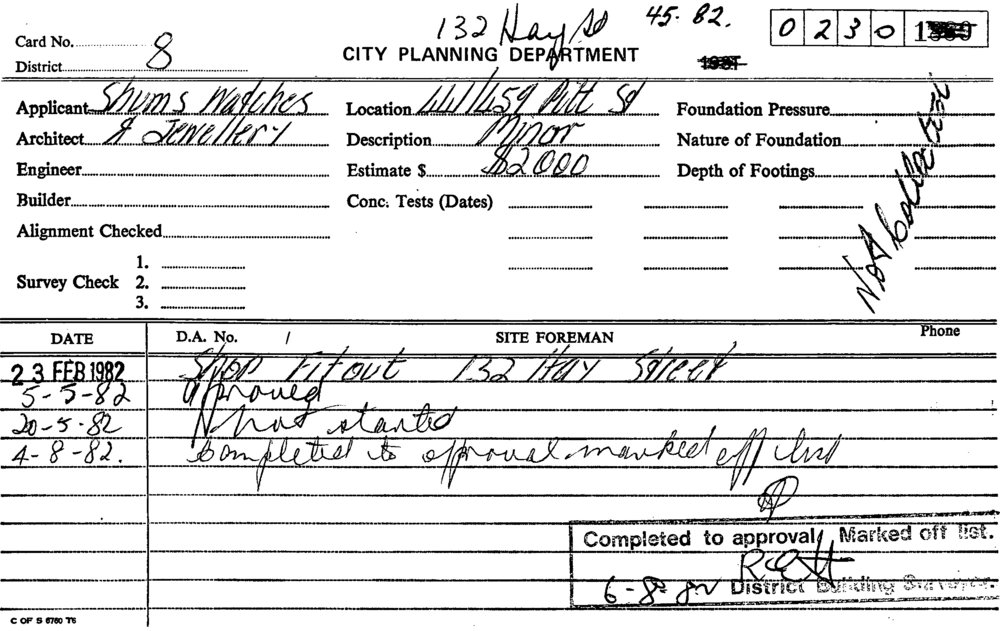 132 Hay St 45. 82.
0230
Card No.
District 8
CITY PLANNING DEPARTMENT
1981
Applicant Shums Watches
Location 441/459 Pitt St
Foundation Pressure
Architect & Jewellery
Description Minor
Nature of Foundation
Engineer
Estimate $ $2000
Depth of Footings
Builder
Conc. Tests (Dates)
Not
Alignment Checked
Survey Check 1.
2.
3.
DATE D.A. No. / SITE FOREMAN Phone
23 FEB 1982 Shop Fitout 132 Hay Street
5-5-82 approved
20-5-82 not started
4-8-82. Completed to approval marked off list
Completed to approval, Marked off list.
6-8-82 District Building Surveyor.
C OF S 6760 T6